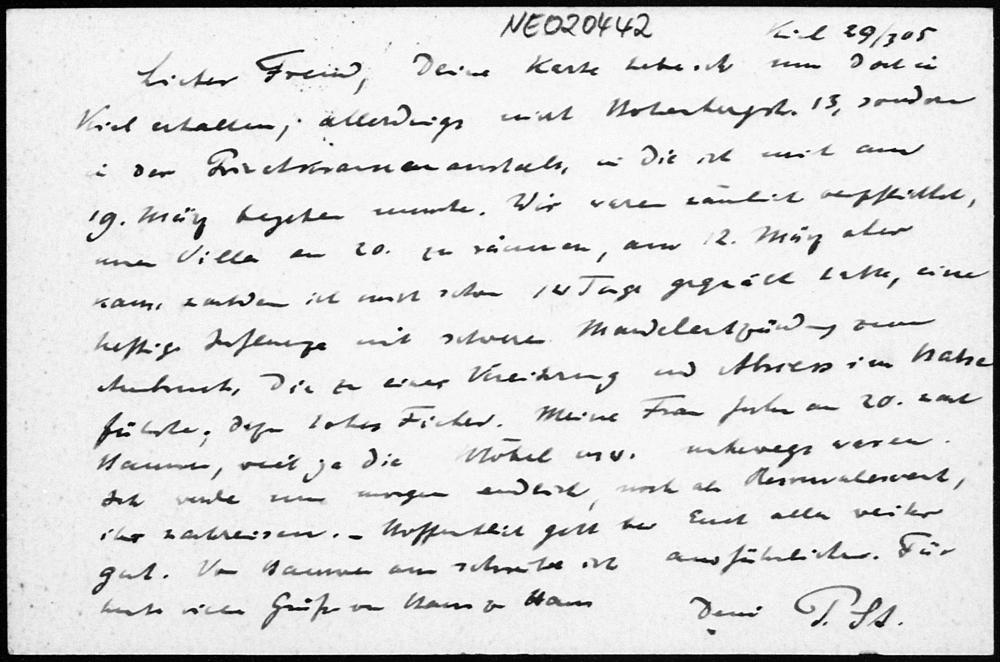 NEO20442
Kiel 29/3 05
Lieber Freund, Deine Karte habe ich nun doch in
Kiel erhalten, allerdings nicht Hohenbergstr. 13, sondern
in der Privatkrankenanstalt, in die ich mich am
19. März begeben musste. Wir waren nämlich verpflichtet,
unsere Villa am 20. zu räumen, am 12. März aber
kam, nachdem ich mich schon 14 Tage gequält hatte, eine
heftige Influenza mit schwerer Mandelentzündung zum
Ausbruch, die zu einer Vereiterung und Abscess im Halse
führte, dazu hohes Fieber. Meine Frau fuhr am 20. nach
Hannover, weil ja die Möbel usw. unterwegs waren.
Ich werde nun morgen endlich, noch als Reconvalescent,
ihr nachreisen. – Hoffentlich geht es bei Euch allen weiter
gut. Von Hannover aus schreibe ich ausführlicher. Für
heute viele Grüße von Haus zu Haus
Dein P. St.